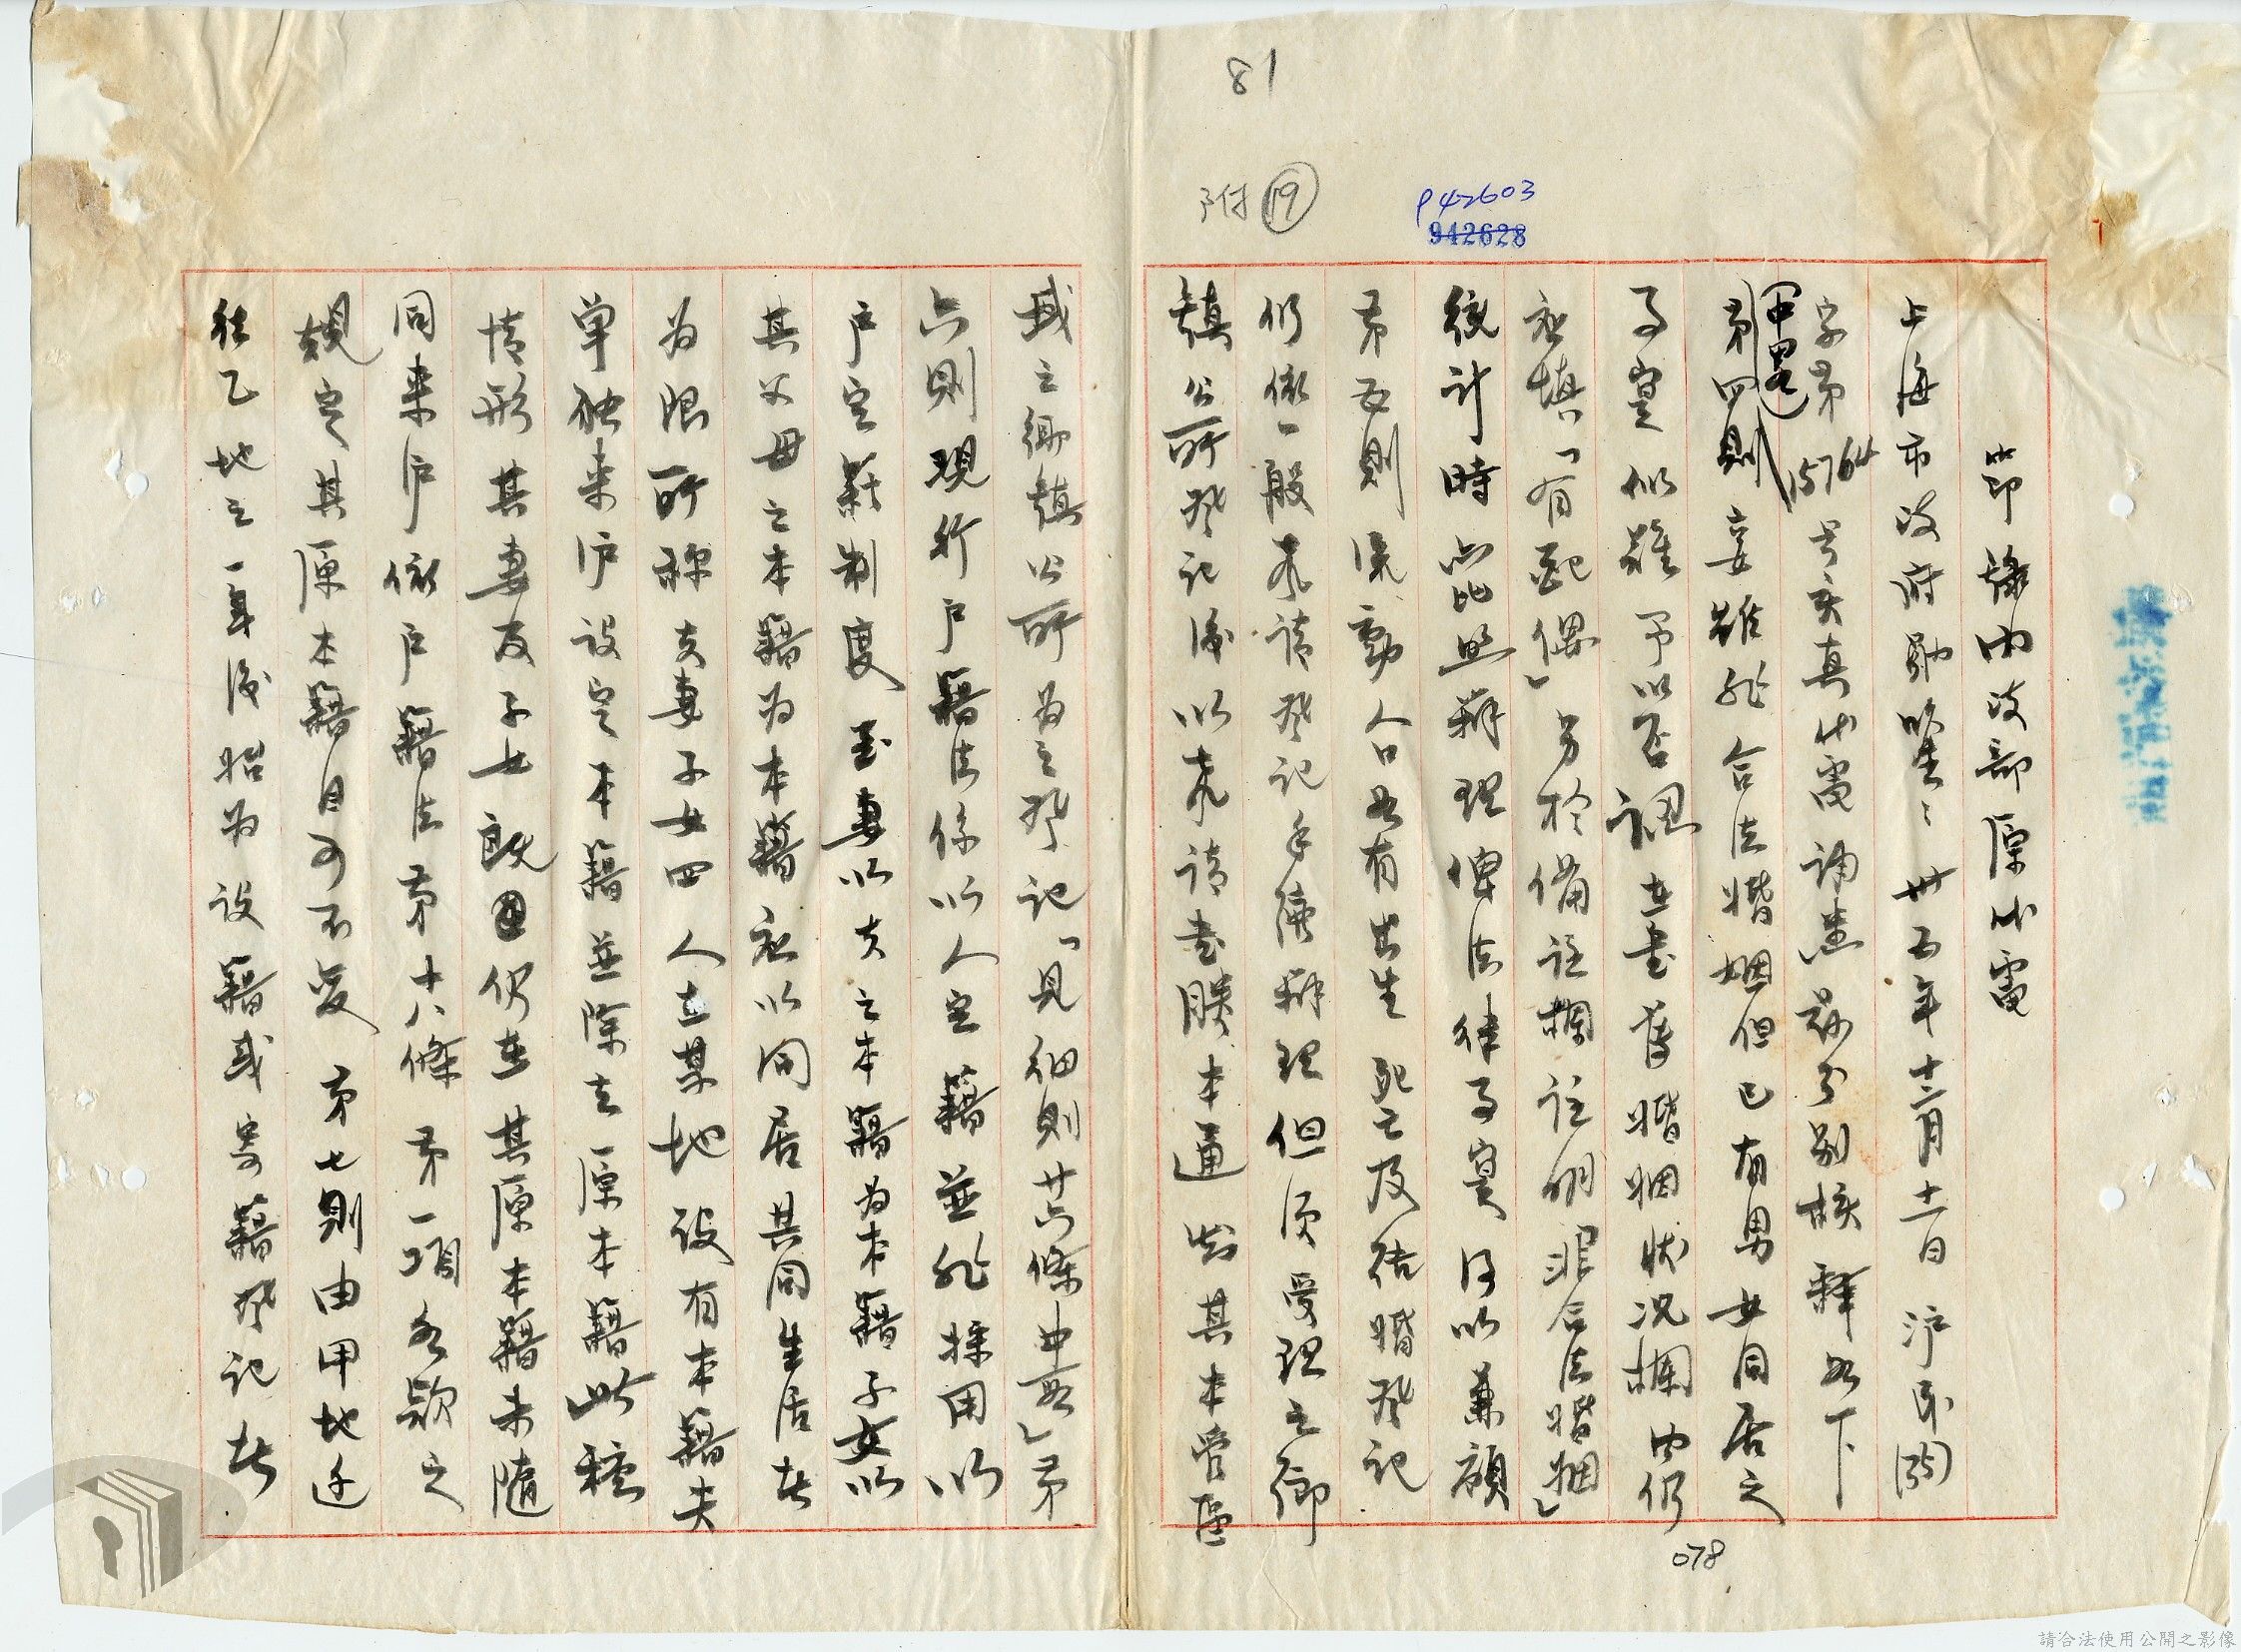 81
附 19
P42603
942628
節錄內政部原代電
上海市政府勛鑒:卅五年十二月十一日沪民(35)
字第15764号亥真代電誦悉茲分別核釋如下
(中畧)
第四則妾雖非合法婚姻但已有男女同居之
事實似難予以否認在書香婚姻狀况欄内仍
应填「有配偶」另於備註欄註明「非合法婚姻」
統計時亦比照辦理俾法律事實得以兼顧
第五則流動人口如有出生死亡及结婚登記
仍依一般声請登記手續辦理但須受理之鄉
鎮公所登記後以声請書謄本通知其本管區
域之鄉鎮公所為之登記「見細則廿六條中略」第
六則現行户籍法係以人定籍並非採用以
户定籍制度至妻以夫之本籍為本籍子女以
其父母之本籍為本籍应以同居共同生活者
为限所称夫妻子女四人在某地设有本籍夫
单独来沪設定本籍並除去原本籍此種
情形其妻及子女既仍在其原本籍未隨
同来沪依户籍法第十八條第一項各款之
規定其原本籍自可不变 第七則由甲地迁
往乙地之一年後始为设籍或寄籍登記者
078
請合法使用公開之影像